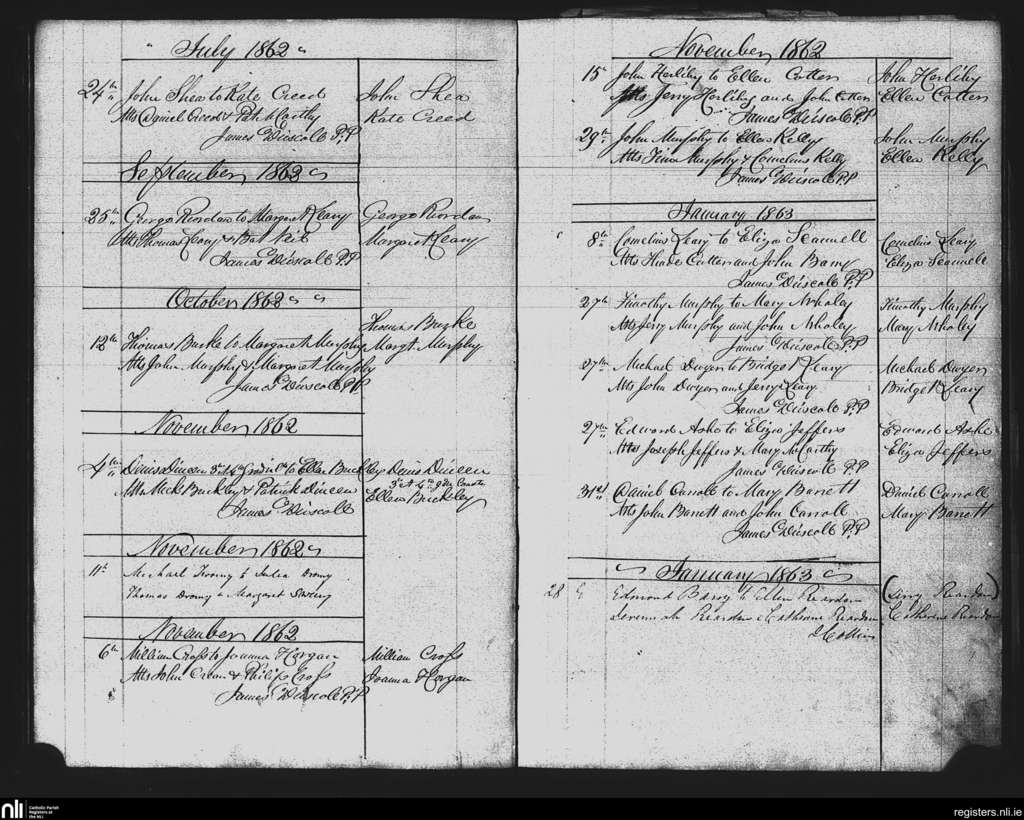 July 1862
24th John Shea to Kate Creed
Atts Daniel Creed & Pat McCarthy
James O'Driscoll P.P
John Shea
Kate Creed
September 1862
25th George Riordan to Margaret Leary
Atts Thomas Leary & Bat Neil
James O'Driscoll P.P
George Riordan
Margaret Leary
October 1862
12th Thomas Burke to Margaret Murphy
Atts John Murphy & Margaret Murphy
James O'Driscoll P.P
Thomas Burke
Margt. Murphy
November 1862
4th Denis Dineen 3rd & 4th to Ellen Buckley
Atts Mick Buckley & Patrick Dineen
James O'Driscoll
Denis Dineen
3rd & 4th
Ellen Buckley
November 1862
11th Michael Twomy to Julia Dromy
Thomas Dromy & Margaret Sweeny
November 1862
6th William Cross to Joanna Horgan
Atts John Crean & Philip Cross
James O'Driscoll P.P
William Cross
Joanna Horgan
November 1862
15th John Herlihy to Ellen Cotter
Atts Jerry Herlihy and John Cotter
James O'Driscoll P.P
John Herlihy
Ellen Cotter
29th John Murphy to Ellen Kelly
Atts Tim Murphy & Cornelius Kelly
James O'Driscoll P.P
John Murphy
Ellen Kelly
January 1863
8th Cornelius Leary to Eliza Scannell
Atts Cotter and John Barry
James O'Driscoll P.P
Cornelius Leary
Eliza Scannell
27th Timothy Murphy to Mary Whaley
Atts Jerry Murphy and John Whaley
James O'Driscoll P.P
Timothy Murphy
Mary Whaley
27th Michael Dwyer to Bridget Leary
Atts John Dwyer and Jerry Leary
James O'Driscoll P.P
Michael Dwyer
Bridget Leary
27th Edward Ashe to Eliza Jeffers
Atts Joseph Jeffers & Mary McCarthy
James O'Driscoll P.P
Edward Ashe
Eliza Jeffers
31st Daniel Carroll to Mary Barrett
Atts John Barrett and John Carroll
James O'Driscoll P.P
Daniel Carroll
Mary Barrett
January 1863
28 Edmond Barry to Ellen Reardon
Jeremiah Reardon & Catherine Reardon
J Collins
Reardon
Catherine Reardon
nli
Catholic Parish
Registers at
the NLI
registers.nli.ie